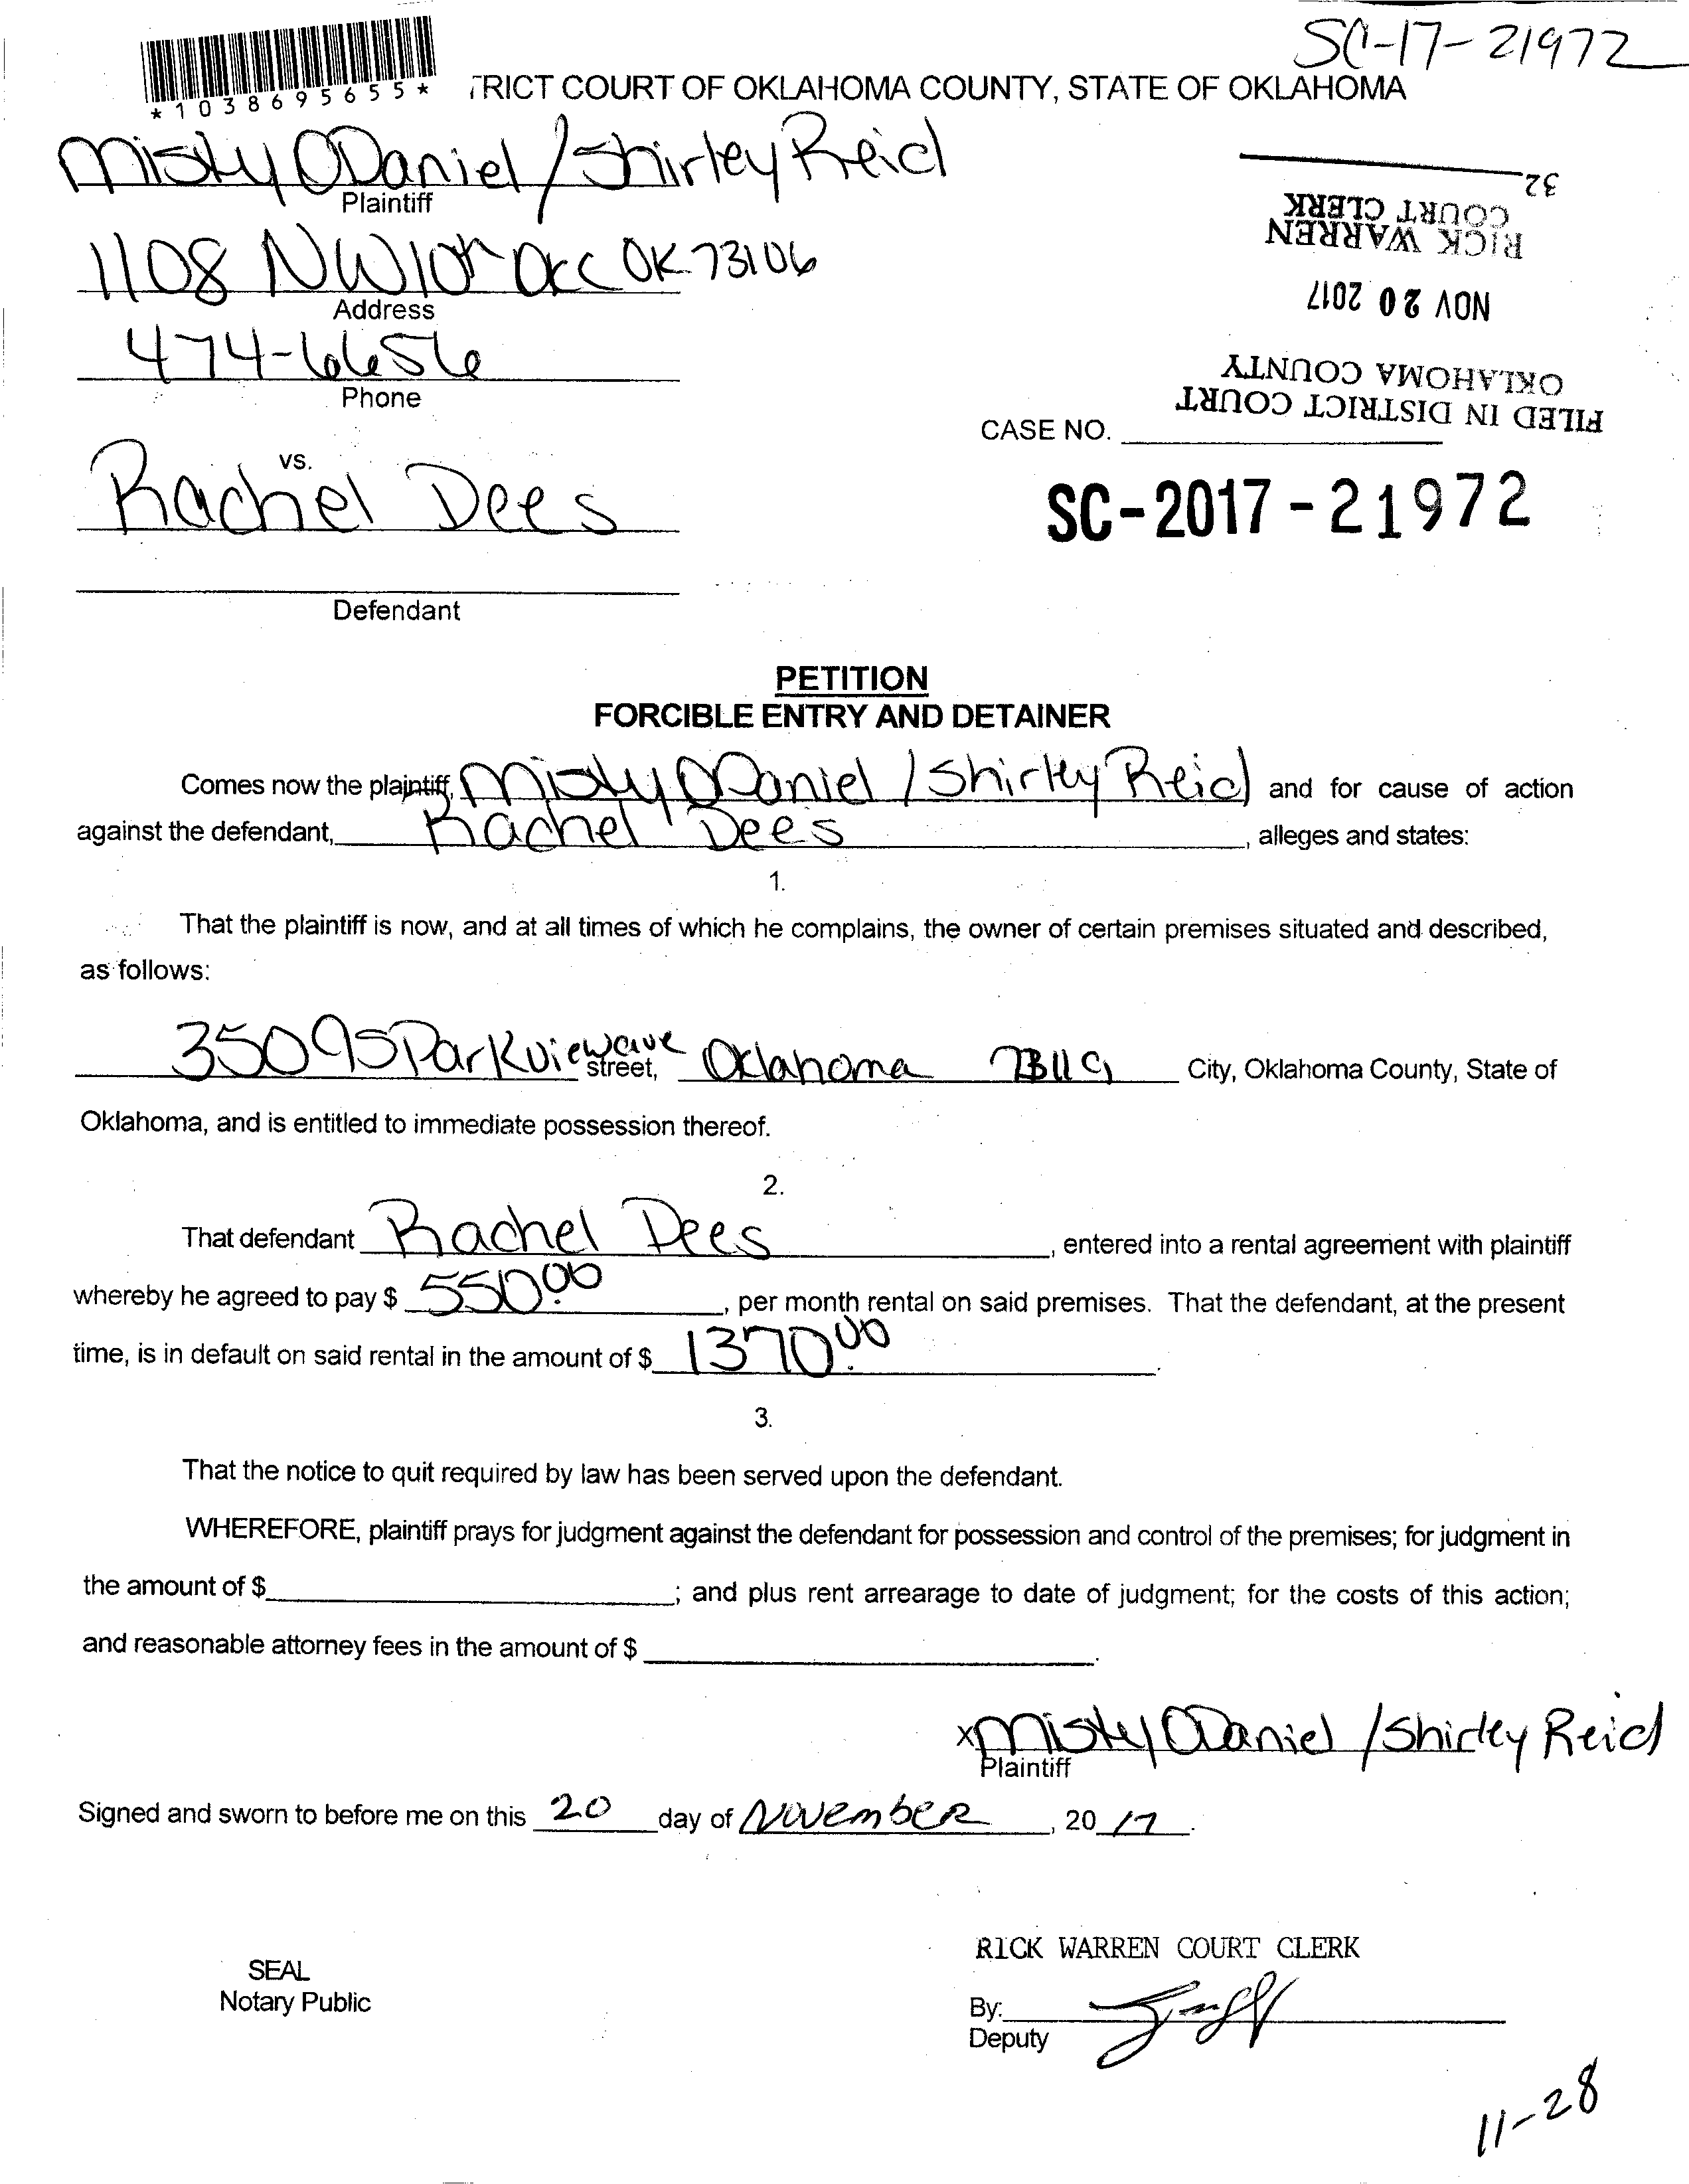 SC-17-21972
*1038695655*
TRICT COURT OF OKLAHOMA COUNTY, STATE OF OKLAHOMA
Misty ODaniel / Shirley Reid
Plaintiff
32
COURT CLERK
RICK WARREN
1108 NW 10th OKC OK 73106
Address
NOV 20 2017
474-6656
Phone
OKLAHOMA COUNTY
FILED IN DISTRICT COURT
CASE NO.
vs.
Rachel Dees
SC-2017-21972
Defendant
PETITION
FORCIBLE ENTRY AND DETAINER
Comes now the plaintiff, Misty ODaniel / Shirley Reid and for cause of action
against the defendant, Rachel Dees, alleges and states:
1.
That the plaintiff is now, and at all times of which he complains, the owner of certain premises situated and described,
as follows:
3509 S Parkview ave street, Oklahoma 73119 City, Oklahoma County, State of
Oklahoma, and is entitled to immediate possession thereof.
2.
That defendant Rachel Dees, entered into a rental agreement with plaintiff
whereby he agreed to pay $ 550.00, per month rental on said premises. That the defendant, at the present
time, is in default on said rental in the amount of $ 1370.00.
3.
That the notice to quit required by law has been served upon the defendant.
WHEREFORE, plaintiff prays for judgment against the defendant for possession and control of the premises; for judgment in
the amount of $; and plus rent arrearage to date of judgment; for the costs of this action;
and reasonable attorney fees in the amount of $.
x Misty ODaniel / Shirley Reid
Plaintiff
Signed and sworn to before me on this 20 day of November, 2017.
RICK WARREN COURT CLERK
SEAL
Notary Public
By:
Deputy
11-28